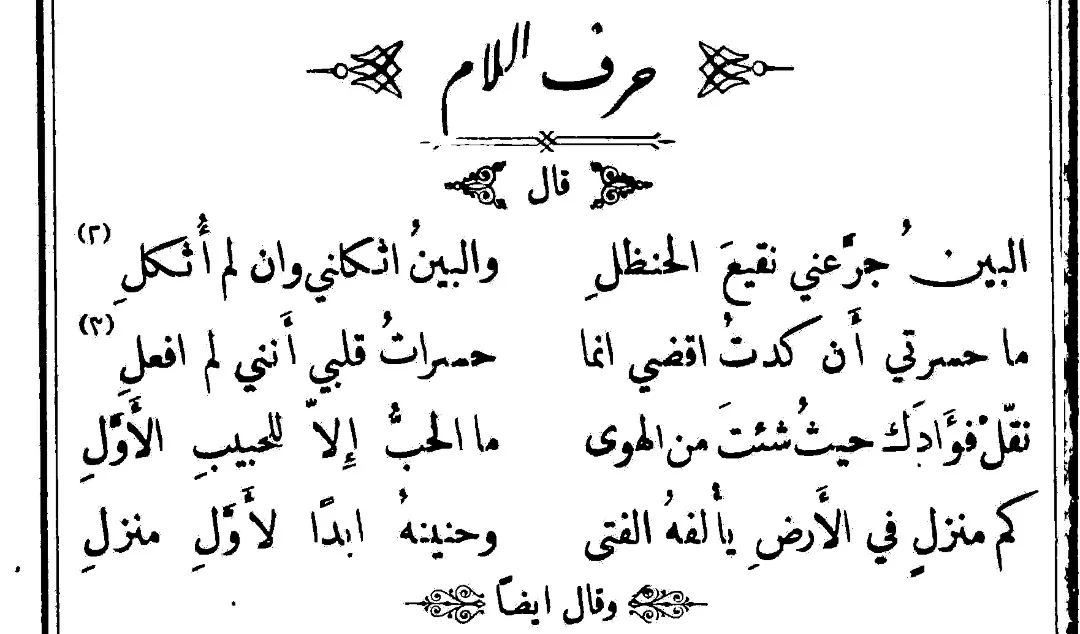 حرف اللام
قال
البينُ جرَّعني نقيعَ الحنظلِ والبينُ اثكلني وان لم أُثكلِ (٢)
ما حسرتي أَن كدتُ اقضي انما حسراتُ قلبي أَنني لم افعلِ (٣)
نقّلْ فؤَادَكَ حيثُ شئتَ من الهوى ما الحبُّ إِلاَّ للحبيبِ الأَوَّلِ
كم منزلٍ في الأَرضِ يأْلفهُ الفتى وحنينهُ ابدًا لأَوَّلِ منزلِ
وقال ايضاً